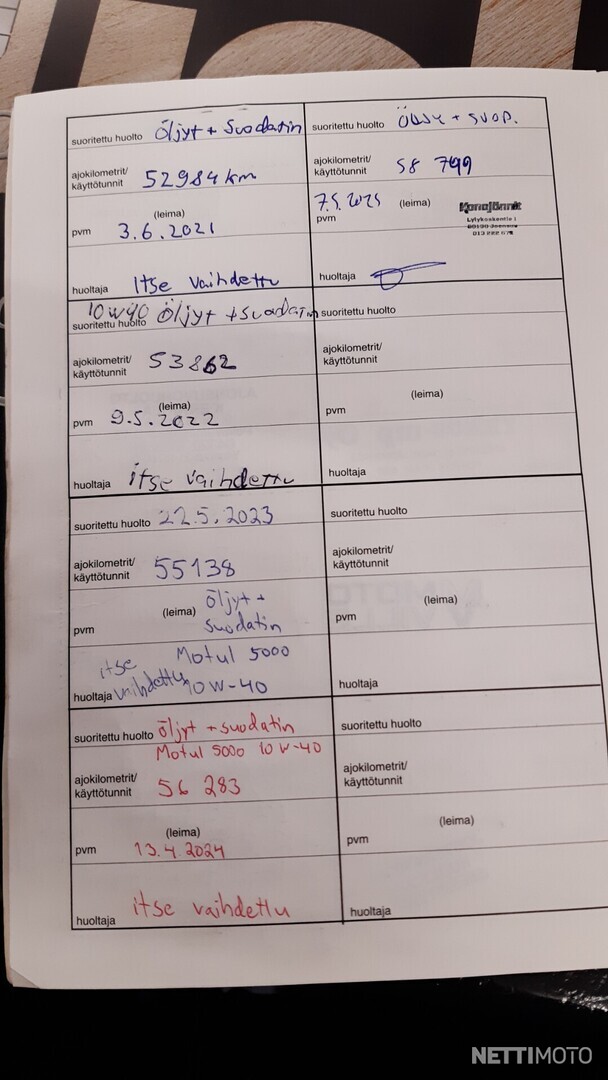 suoritettu huolto Öljyt + Suodatin
ajokilometrit/
käyttötunnit 52984 km
(leima)
pvm 3.6.2021
huoltaja Itse vaihdettu
10w40 Öljyt + suodatin
suoritettu huolto
ajokilometrit/
käyttötunnit 53862
(leima)
pvm 9.5.2022
huoltaja itse vaihdettu
suoritettu huolto 22.5.2023
ajokilometrit/
käyttötunnit 55138
(leima) Öljyt +
suodatin
pvm
itse Motul 5000
huoltaja vaihdettu 10W-40
suoritettu huolto Öljyt + suodatin
Motul 5000 10W-40
ajokilometrit/
käyttötunnit 56 283
(leima)
pvm 13.4.2024
huoltaja itse vaihdettu
suoritettu huolto ÖLJY + SUOD.
ajokilometrit/
käyttötunnit 58 799
7.5.2025 (leima)
pvm
Konejönnit
huoltaja
suoritettu huolto
ajokilometrit/
käyttötunnit
(leima)
pvm
huoltaja
suoritettu huolto
ajokilometrit/
käyttötunnit
(leima)
pvm
huoltaja
suoritettu huolto
ajokilometrit/
käyttötunnit
(leima)
pvm
huoltaja
NETTIMOTO